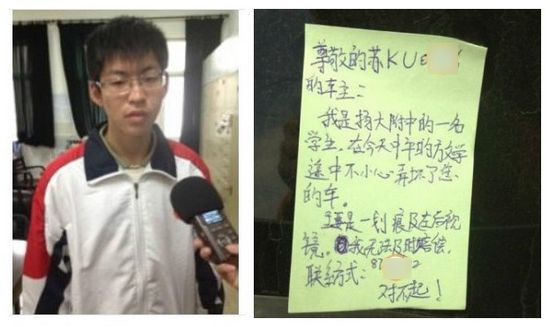 尊敬的苏KUE
的车主：
我是扬大附中的一名
学生，在今天中午的放学
途中不小心弄坏了您
的车。
主要是一划痕及左后视
镜。我无法及时赔偿，
联系方式：87 2
对不起！